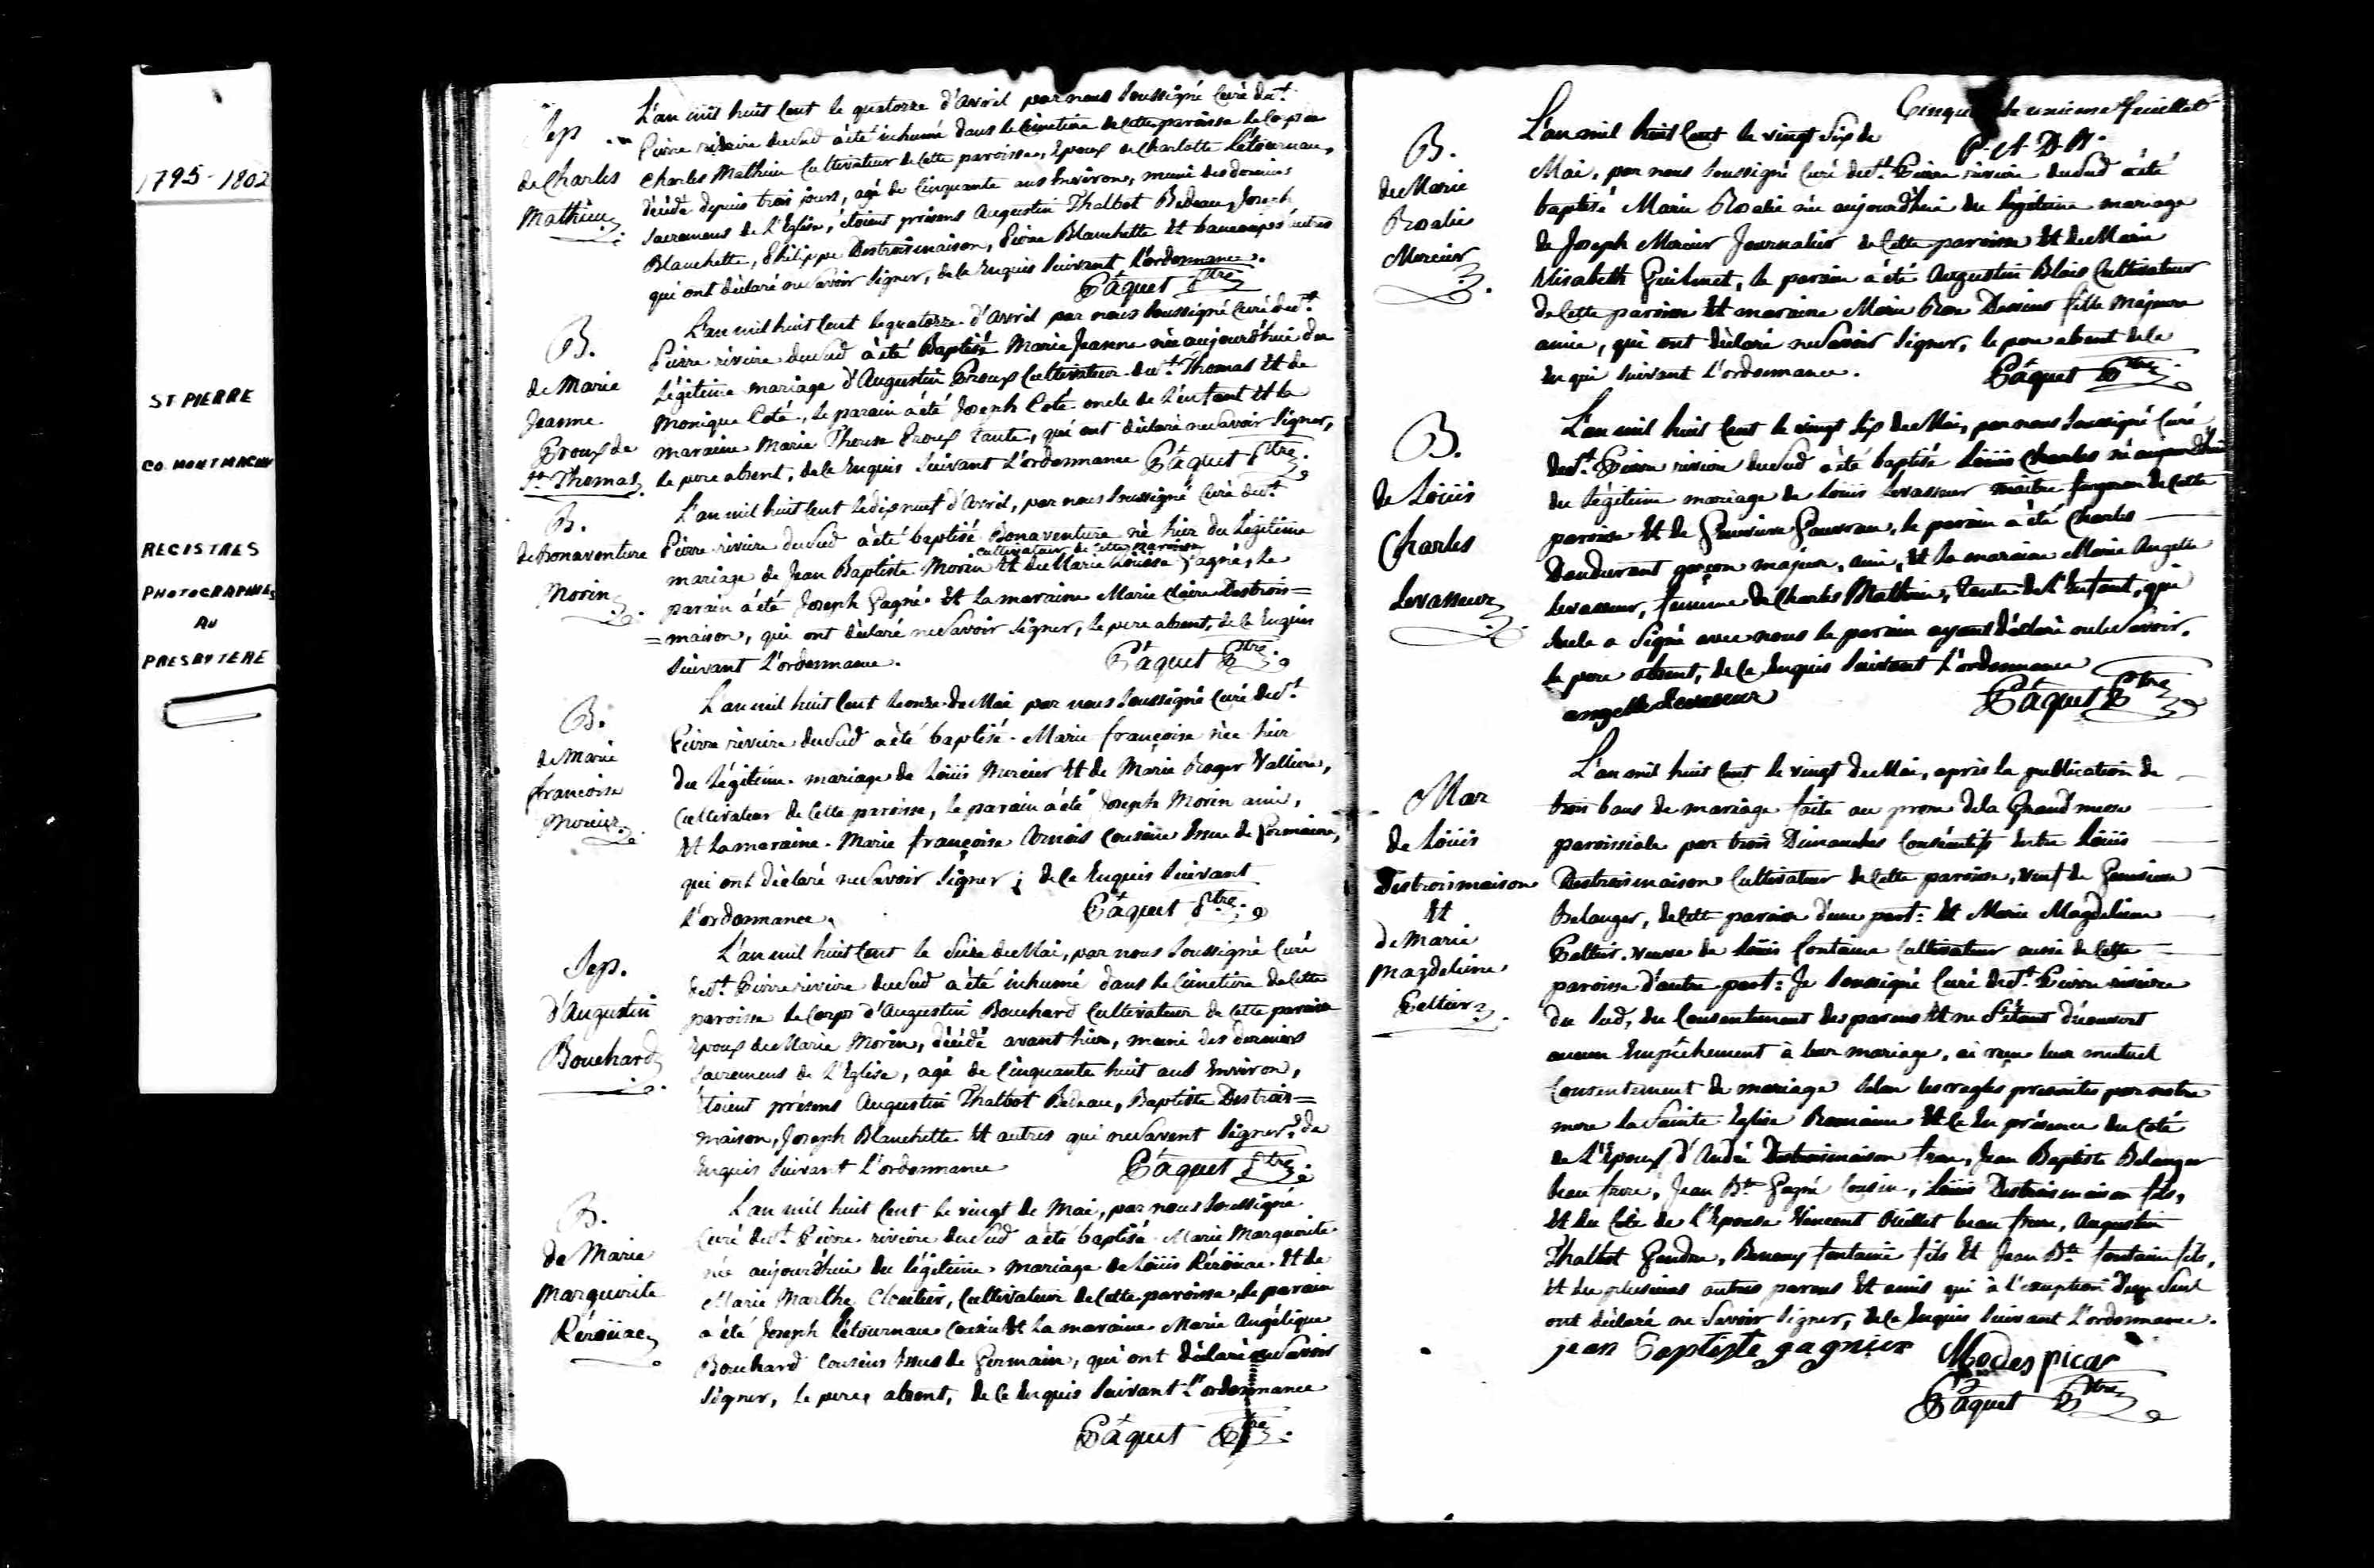 1795-1802
ST PIERRE
CO. MONTMAGNY
REGISTRES
PHOTOGRAPHIÉS
AU
PRESBYTERE
Sep.
de Charles
Mathieu
L'an mil huit Cent le quatorze d'Avril par nous Soussigné Curé de St.
Pierre riviere du Sud a été inhumé dans le Cimetiere de Cette paroisse le Corps de
Charles Mathieu Cultivateur de Cette paroisse, Epoux de Charlotte Létourneau,
décédé depuis trois jours, agé de Cinquante ans Environs, muni des derniers
Sacremens de L'Eglise, étoient présens Augustin Thalbot Bedeau, Joseph
Blanchette, Philippe Destroismaison, Pierre Blanchette Et beaucoup d'autres
qui ont déclaré ne Savoir Signer, de Ce Enquis Suivant L'ordonnance.
Pâquet Ptre
B.
de Marie
Jeanne
Proux de
St. Thomas
L'an mil huit Cent le quatorze d'Avril par nous Soussigné Curé de St.
Pierre riviere du Sud a été Baptisé Marie Jeanne née aujourd'hui du
Légitime mariage d'Augustin Proux Cultivateur de St. Thomas Et de
Monique Coté, le parain a été Joseph Coté oncle de L'enfant Et la
maraine Marie Therese Proux tante, qui ont déclaré ne Savoir Signer,
le pere absent, de Ce Enquis Suivant L'ordonnance Pâquet Ptre.
B.
de Bonaventure
Morin
L'an mil huit Cent le dix neuf d'Avril, par nous Soussigné Curé de St.
Pierre riviere du Sud a été baptisé Bonaventure né hier du Légitime
cultivateur de cette paroisse
mariage de Jean Baptiste Morin Et de Marie Loüise Gagné, le
parain a été Joseph Gagné Et la maraine Marie Claire Destrois=
=maison, qui ont déclaré ne Savoir Signer, le pere absent, de Ce Enquis
Suivant L'ordonnance. Pâquet Ptre.
B.
de Marie
françoise
Mercier
L'an mil huit Cent le onze de Mai par nous Soussigné Curé de St.
Pierre riviere du Sud a été baptisé Marie françoise née hier
du Légitime mariage de Loüis Mercier Et de Marie Roger Valliere,
Cultivateur de Cette paroisse, le parain a été Joseph Morin ami,
Et la maraine Marie françoise Cousine Issue de Germaine,
qui ont déclaré ne Savoir Signer; de Ce Enquis Suivant
L'ordonnance. Pâquet Ptre.
Sep.
d'Augustin
Bouchard
L'an mil huit Cent le Seize de Mai, par nous Soussigné Curé
de St. Pierre riviere du Sud a été inhumé dans le Cimetiere de Cette
paroisse le Corps d'Augustin Bouchard Cultivateur de Cette paroisse
Epoux de Marie Morin, décédé avant hier, muni des derniers
Sacremens de L'Eglise, agé de Cinquante huit ans Environ,
étoient présens Augustin Thalbot Bedeau, Baptiste Destrois=
maison, Joseph Blanchette Et autres qui ne Savent Signer, de Ce
Enquis Suivant L'ordonnance Pâquet Ptre.
B.
de Marie
Marguerite
Kéroüac
L'an mil huit Cent le vingt de Mai, par nous Soussigné
Curé de St. Pierre riviere du Sud a été baptisé Marie Marguerite
née aujourd'hui du légitime mariage de Loüis Kéroüac Et de
Marie Marthe Cloutier, Cultivateur de Cette paroisse, le parain
a été Joseph Létourneau Cousin Et la maraine Marie Angélique
Bouchard Cousins Issus de Germain, qui ont déclaré ne Savoir
Signer, le pere absent, de Ce Enquis Suivant L'ordonnance
Pâquet Ptre.
unieme feuillet
B.
de Marie
Rosalie
Mercier
L'an mil huit Cent le vingt Six de
Mai, par nous Soussigné Curé de St. Pierre riviere du Sud a été
baptisé Marie Rosalie née aujourd'hui du légitime mariage
de Joseph Mercier Journalier de Cette paroisse Et de Marie
Elisabeth Guilmet, le parain a été Augustin Blais Cultivateur
de Cette paroisse Et maraine Marie Rose fille Majeure
amie, qui ont déclaré ne Savoir Signer, le pere absent de Ce
Enquis Suivant L'ordonnance. Pâquet Ptre
B.
de Loüis
Charles
Levasseur
L'an mil huit Cent le vingt Six de Mai, par nous Soussigné Curé
de St. Pierre riviere du Sud a été baptisé Loüis Charles né aujourd'hui
du légitime mariage de Loüis Levasseur maitre forgeron de Cette
paroisse Et de Genevieve Gauvreau, le parain a été Charles
Dandurant garçon majeur, ami, Et la maraine Marie Angelle
Levasseur, femme de Charles Mathieu, tante de L'Enfant, qui
Seule a Signé avec nous le parain ayant déclaré ne le Savoir.
le pere absent, de Ce Enquis Suivant L'ordonnance
angelle levasseur Pâquet Ptre
Mar
de Loüis
Destroismaison
Et
de Marie
Magdeleine
Peltier
L'an mil huit Cent le vingt de Mai, après la publication de
trois bans de mariage faite au prone de la Grand messe
paroissiale par trois Dimanches Consécutifs Entre Loüis
Destroismaison Cultivateur de Cette paroisse, Veuf de Genevieve
Belanger, de Cette paroisse d'une part: Et Marie Magdeleine
Peltier Veuve de Loüis Fontaine Cultivateur aussi de Cette
paroisse d'autre part: Je Soussigné Curé de St. Pierre riviere
du Sud, du Consentement des parens Et ne S'étant découvert
aucun Empêchement à leur mariage, ai reçu leur mutuel
Consentement de mariage Selon les regles prescrites par notre
mere la Sainte Eglise Romaine Et Ce En présence du Coté
de L'Epoux d'André Destroismaison frere, Jean Baptiste Belanger
beau frere, Jean Bte Gagné Cousin, Loüis Destroismaison fils,
Et du Coté de l'Epouse Vincent Oüellet beau frere, Augustin
Thalbot Gendre, Benony fontaine fils Et Jean Bte fontaine fils,
Et de plusieurs autres parens Et amis qui à l'exception d'un Seul
ont déclaré ne Savoir Signer, de Ce Enquis Suivant L'ordonnance.
jean Baptiste gagnier
Pâquet Ptre